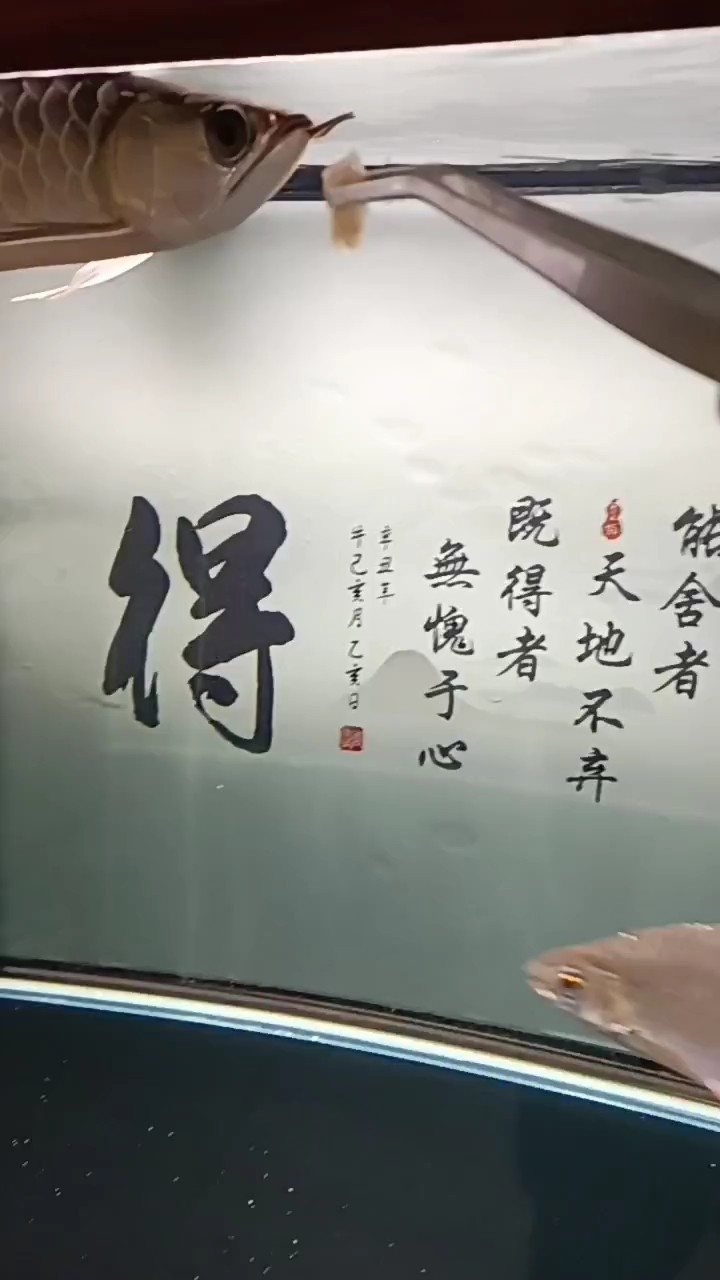 能舍者
天地不弃
既得者
無愧于心
辛丑年
己亥月乙亥日
得